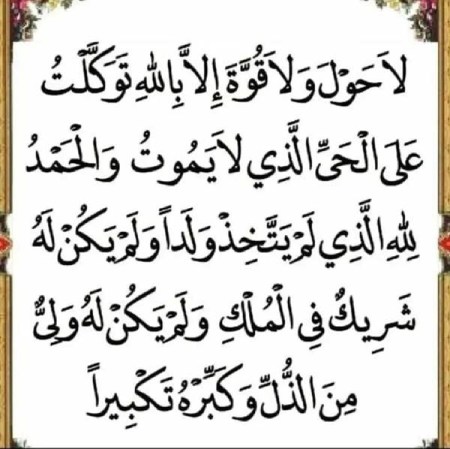 لاَ حَوْلَ وَلاَ قُوَّةَ إِلاَّ بِاللهِ تَوَكَّلْتُ
عَلَى الْحَيِّ الَّذِي لاَ يَمُوتُ وَالْحَمْدُ
لِلهِ الَّذِي لَمْ يَتَّخِذْ وَلَداً وَلَمْ يَكُنْ لَهُ
شَرِيكٌ فِي الْمُلْكِ وَلَمْ يَكُنْ لَهُ وَلِيٌّ
مِنَ الذُّلِّ وَكَبِّرْهُ تَكْبِيراً